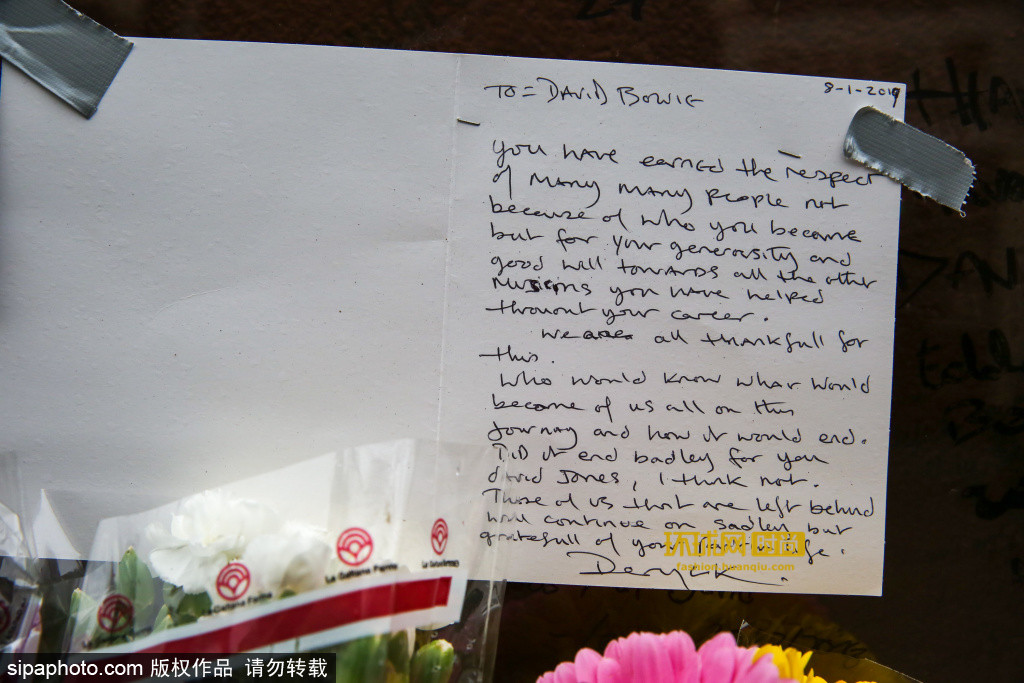 8-1-2019
TO = DAVID BOWIE
You have earned the respect
of many many people not
because of who you became
but for your generousity and
good will towards all the other
you have helped
throuout your career.
We are all thankfull for
this.
Who would know what would
become of us all on this
Journey and how it would end.
Did it end badley for you
David Jones, I think not.
Those of us that are left behind
will continue on sadley but
gratefull of your
Deryck.
环球网 时尚
fashion.huanqiu.com
La Gaitana Farms
La Gaitana Farms
sipaphoto.com 版权作品 请勿转载